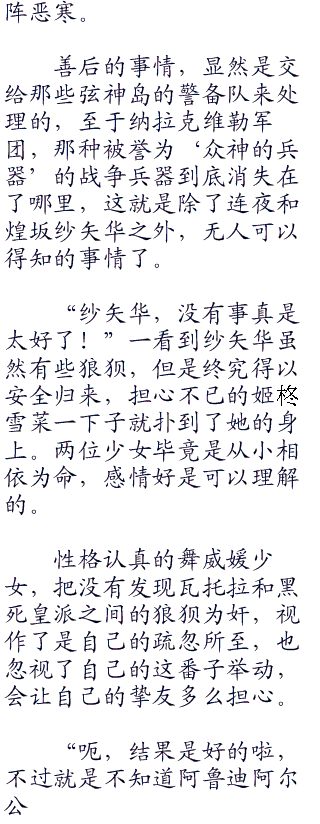 阵恶寒。
善后的事情，显然是交
给那些弦神岛的警备队来处
理的，至于纳拉克维勒军
团，那种被誉为‘众神的兵
器’的战争兵器到底消失在
了哪里，这就是除了连夜和
煌坂纱矢华之外，无人可以
得知的事情了。
“纱矢华，没有事真是
太好了！”一看到纱矢华虽
然有些狼狈，但是终究得以
安全归来，担心不已的姬柊
雪菜一下子就扑到了她的身
上。两位少女毕竟是从小相
依为命，感情好是可以理解
的。
性格认真的舞威媛少
女，把没有发现瓦托拉和黑
死皇派之间的狼狈为奸，视
作了是自己的疏忽所至，也
忽视了自己的这番子举动，
会让自己的挚友多么担心。
“呃，结果是好的啦，
不过就是不知道阿鲁迪阿尔
公